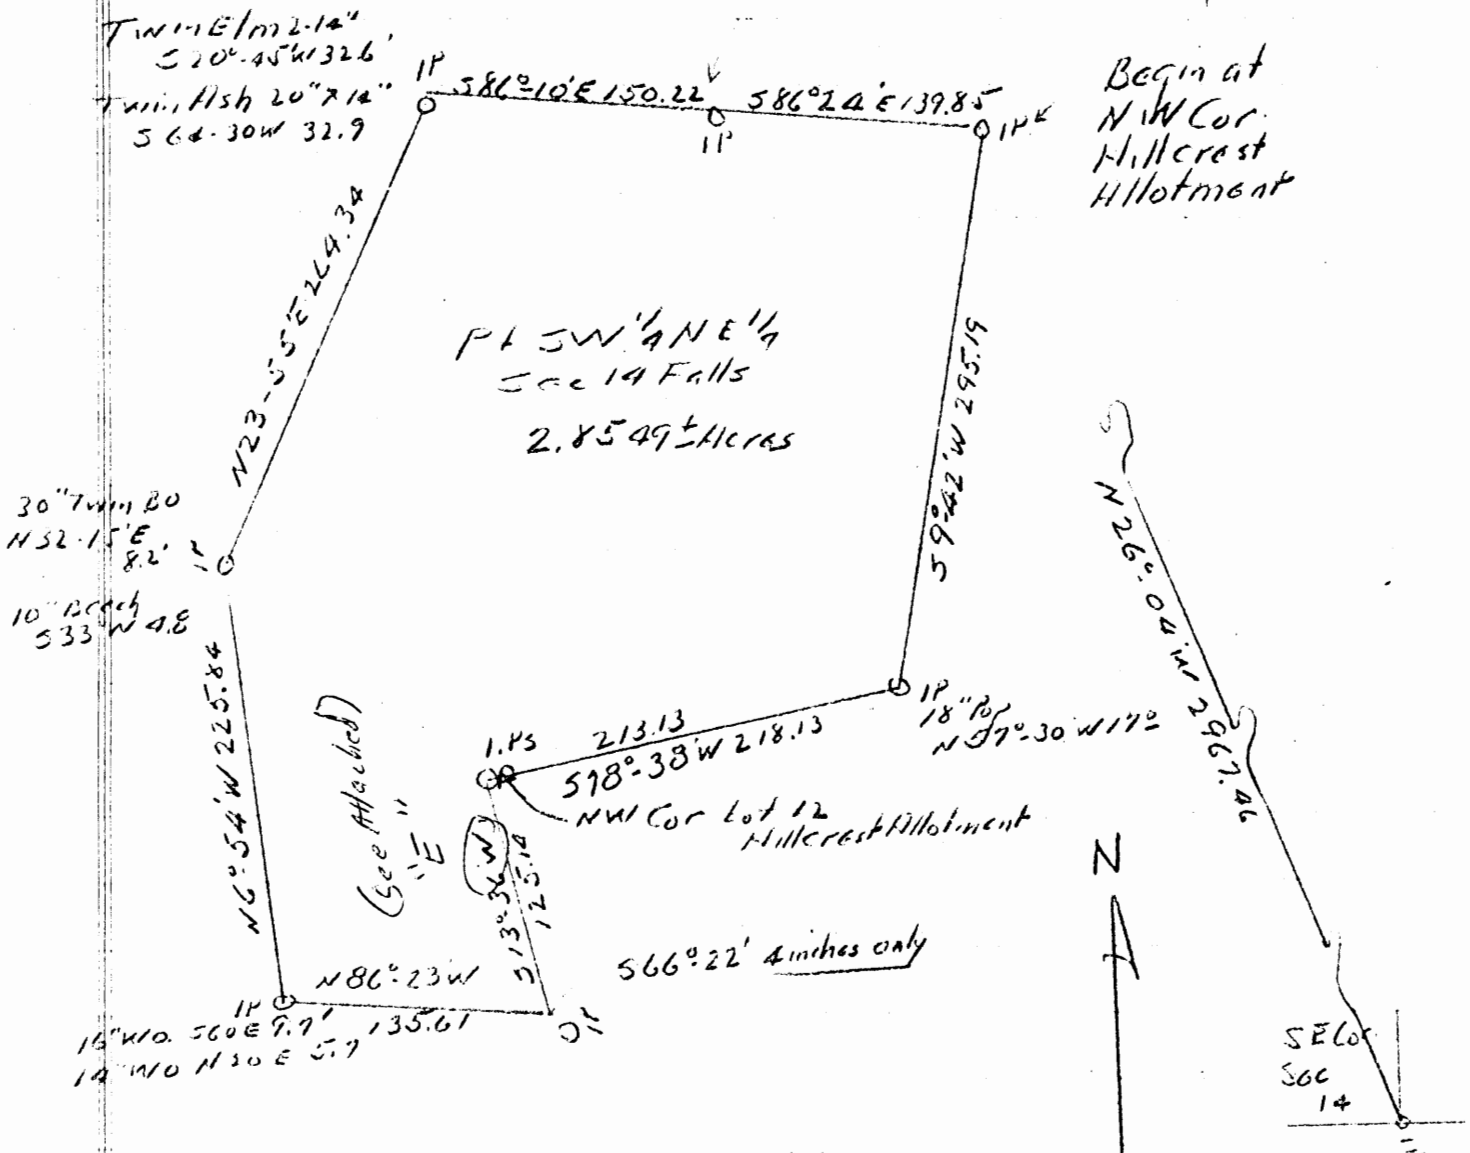 Twin Elm 2-14"
S20°-45'W 32.6'
Twin Ash 20"x14"
S64-30W 32.9
IP
S86°-10'E 150.22'
IP
S86°24'E 139.85
IP
Begin at
NW Cor.
Hillcrest
Allotment
N23-55'E 264.34
Pt SW 1/4 NE 1/4
Sec 14 Falls
2.8549± Acres
S9°-42'W 295.19
30" Twin BO
N32-15'E
8.2'
IP
10" Beech
S33 W 4.8
N6°-54'W 225.84
(See Attached)
"E"
I.PS
213.13
S78°-38'W 218.13
IP
18" Pop
N57°-30'W 17
NW Cor Lot 12
Hillcrest Allotment
S13°-36'W
125.14
S66°22' 4 inches only
N86°-23'W
135.61
IP
16" W.O. S60E 9.7'
14" W.O N20E 5.7
IP
N26°-04'W 2967.46
N
SE Cor
Sec
14